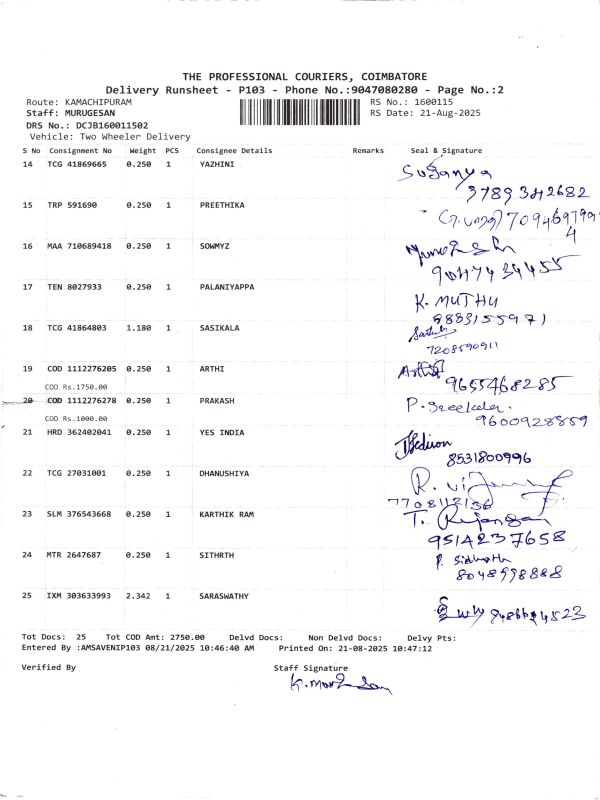 THE PROFESSIONAL COURIERS, COIMBATORE
Delivery Runsheet - P103 - Phone No.:9047080280 - Page No.:2
Route: KAMACHIPURAM RS No.: 1600115
Staff: MURUGESAN RS Date: 21-Aug-2025
DRS No.: DCJB160011502
Vehicle: Two Wheeler Delivery
S No Consignment No Weight PCS Consignee Details Remarks Seal & Signature
14 TCG 41869665 0.250 1 YAZHINI Suganya
3789342682
15 TRP 591690 0.250 1 PREETHIKA
16 MAA 710689418 0.250 1 SOWMYZ
17 TEN 8027933 0.250 1 PALANIYAPPA K. MUTHU
9883155971
18 TCG 41864803 1.180 1 SASIKALA
7208590911
19 COD 1112276205 0.250 1 ARTHI
COD Rs.1750.00 9655468285
20 COD 1112276278 0.250 1 PRAKASH P. Sreekala.
COD Rs.1000.00 9600928859
21 HRD 362402041 0.250 1 YES INDIA
8531800996
22 TCG 27031001 0.250 1 DHANUSHIYA
7708112136
23 SLM 376543668 0.250 1 KARTHIK RAM
9514237658
24 MTR 2647687 0.250 1 SITHRTH
8048998888
25 IXM 303633993 2.342 1 SARASWATHY
Tot Docs: 25 Tot COD Amt: 2750.00 Delvd Docs: Non Delvd Docs: Delvy Pts:
Entered By :AMSAVENIP103 08/21/2025 10:46:40 AM Printed On: 21-08-2025 10:47:12
Verified By Staff Signature